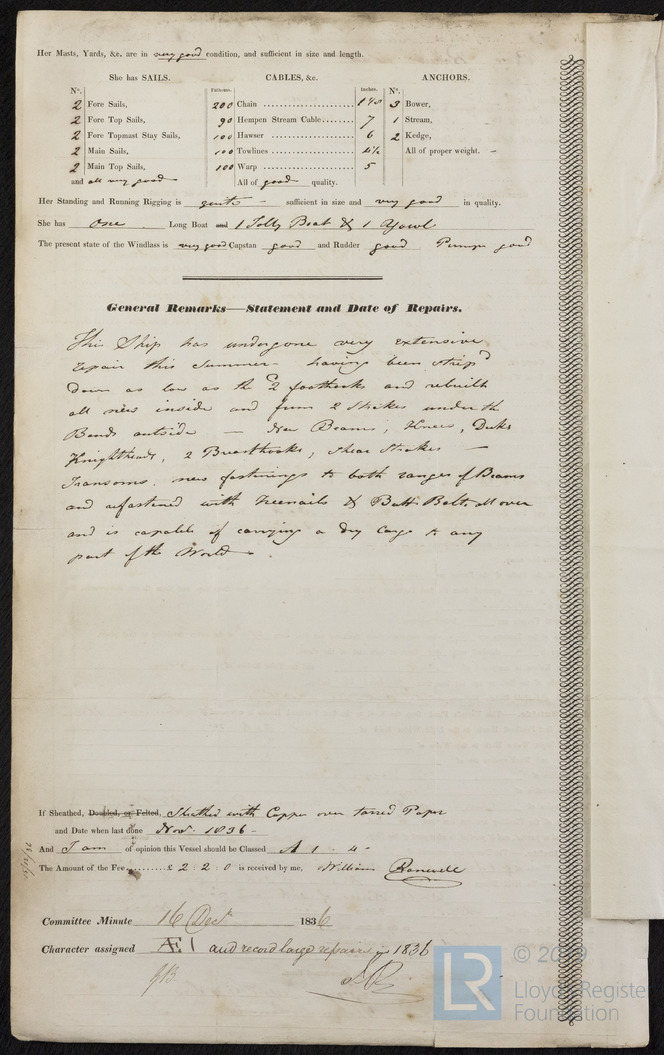 Her Masts, Yards, &c. are in very good condition, and sufficient in size and length.
She has SAILS. CABLES, &c. ANCHORS.
Nº. Fathoms. Inches. Nº.
2 Fore Sails, 200 Chain 1 1/8 3 Bower,
2 Fore Top Sails, 90 Hempen Stream Cable 7 1 Stream,
2 Fore Topmast Stay Sails, 100 Hawser 6 2 Kedge,
2 Main Sails, 100 Towlines 4½ All of proper weight. -
2 Main Top Sails, 100 Warp 5
and all very good All of good quality.
Her Standing and Running Rigging is quite sufficient in size and very good in quality.
She has One Long Boat and 1 Jolly Boat & 1 Yawl
The present state of the Windlass is very good Capstan good and Rudder good Pumps good
General Remarks—Statement and Date of Repairs.
This Ship has undergone very extensive
repair this summer - having been strip'd
down as low as the 2 foothooks and rebuilt
all new inside and from 2 Strikes under the
Bends outside — New Beams, Knees, Decks
Knightheads, 2 Breasthooks, Shear Strakes —
Transoms. new fastenings to both ranges of Beams
and refastened with Treenails & Butt Bolts all over
and is capable of carrying a dry Cargo to any
part of the World.
If Sheathed, Doubled, or Felted, Sheathed with Copper over tarred Paper
and Date when last done Novr. 1836 -
And I am of opinion this Vessel should be Classed A 1 - 4 -
The Amount of the Fee £ 2 : 2 : 0 is received by me, William
Committee Minute 16 Decr 1836
Character assigned Æ 1 and record large repairs in 1836
© 2019
LR Lloyd's Register
Foundation